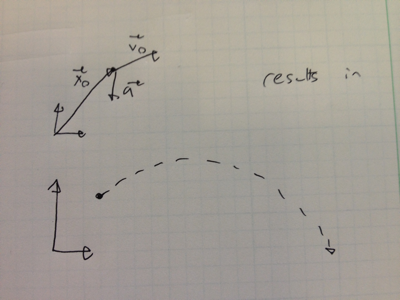 v⃗₀
x⃗₀
a⃗
results in